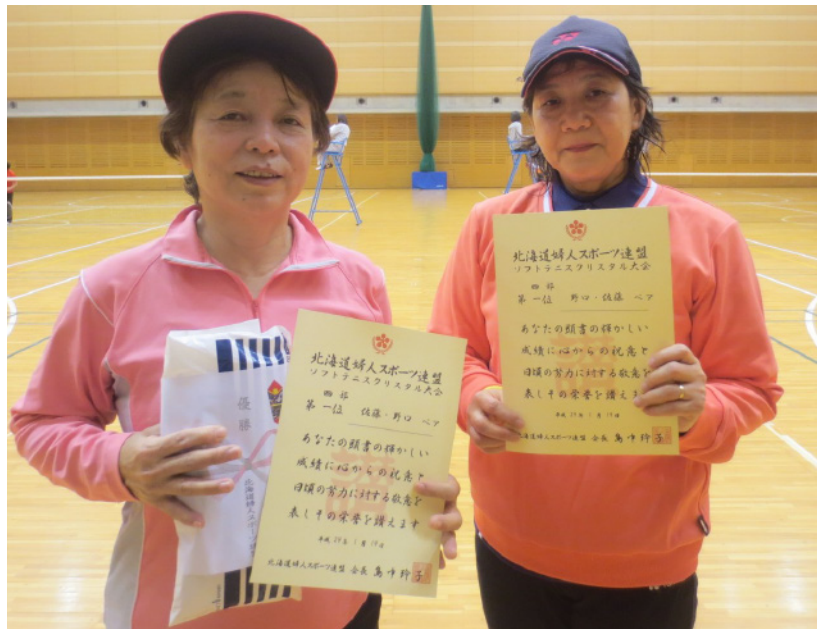 優勝
北海道婦人スポーツ連盟
ソフトテニスクリスタル大会
四部
第一位 佐藤・野口 ペア
あなたの頭書の輝かしい
成績に心からの祝意と
日頃の努力に対する敬意を
表しその栄誉を讃えます
平成29年1月19日
北海道婦人スポーツ連盟 会長
北海道婦人スポーツ連盟
ソフトテニスクリスタル大会
四部
第一位 野口・佐藤 ペア
あなたの頭書の輝かしい
成績に心からの祝意と
日頃の努力に対する敬意を
表しその栄誉を讃えます
平成29年1月19日
北海道婦人スポーツ連盟 会長